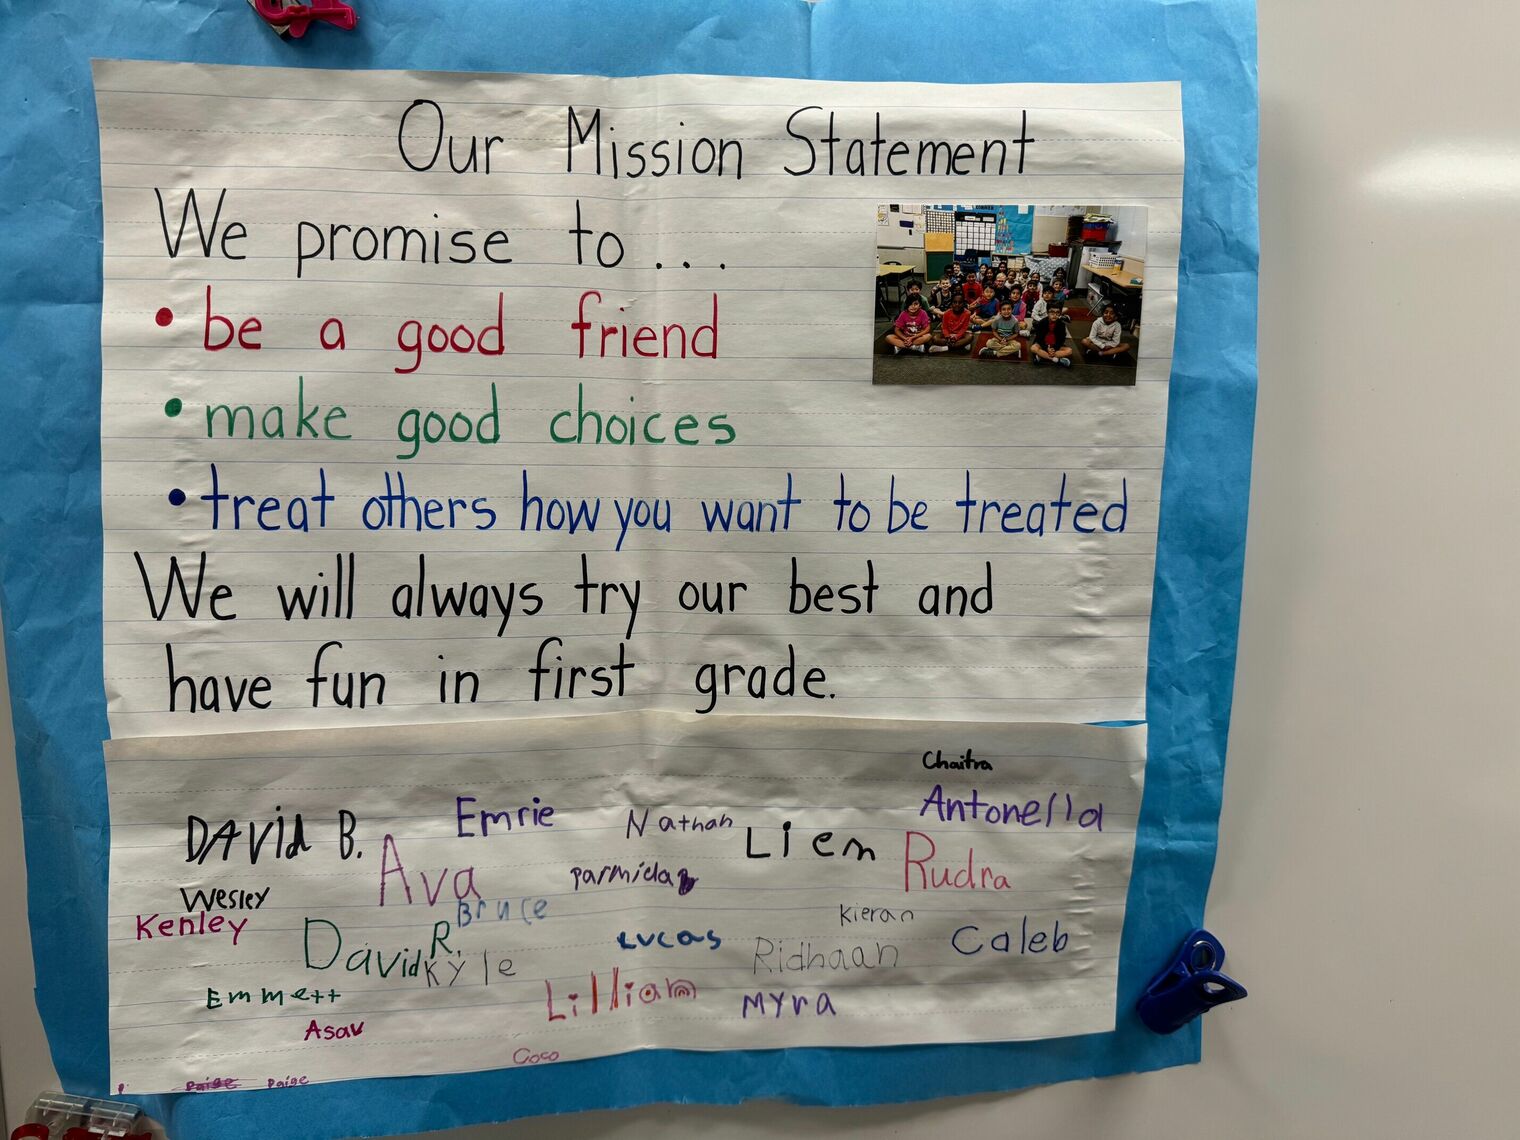 Our Mission Statement
We promise to...
• be a good friend
• make good choices
• treat others how you want to be treated
We will always try our best and
have fun in first grade.
Chaitra
Antonella
Emrie
Nathan
DAViD B.
Liem
Ava
Parmida
Rudra
Wesley
Kenley
Bruce
Kieran
David R.
Lucas
Caleb
Kyle
Ridhaan
Emmett
Lillian
Myra
Asav
Coco
Paige
Paige